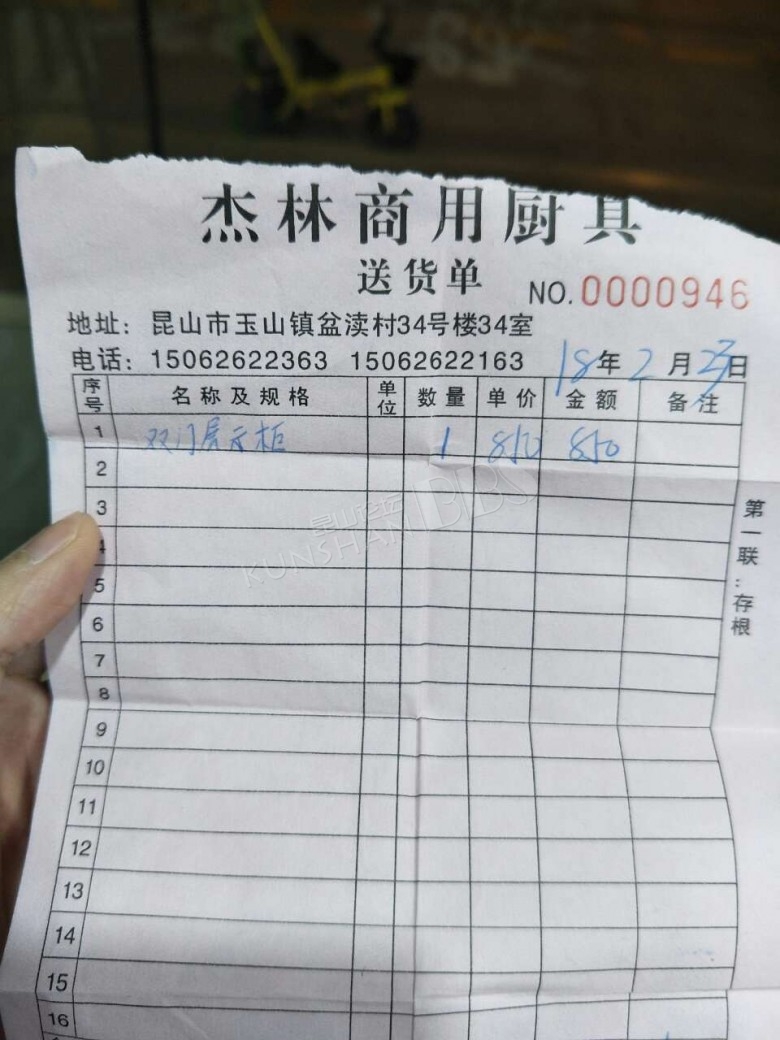 杰林商用厨具
送货单
NO.0000946
地址：昆山市玉山镇盆渎村34号楼34室
电话：15062622363 15062622163
18年2月23日
序号 名称及规格 单位 数量 单价 金额 备注
1 双门展示柜 1 850 850
2
3
4
5
6
7
8
9
10
11
12
13
14
15
16
第一联：存根
KUNSHAN BBS